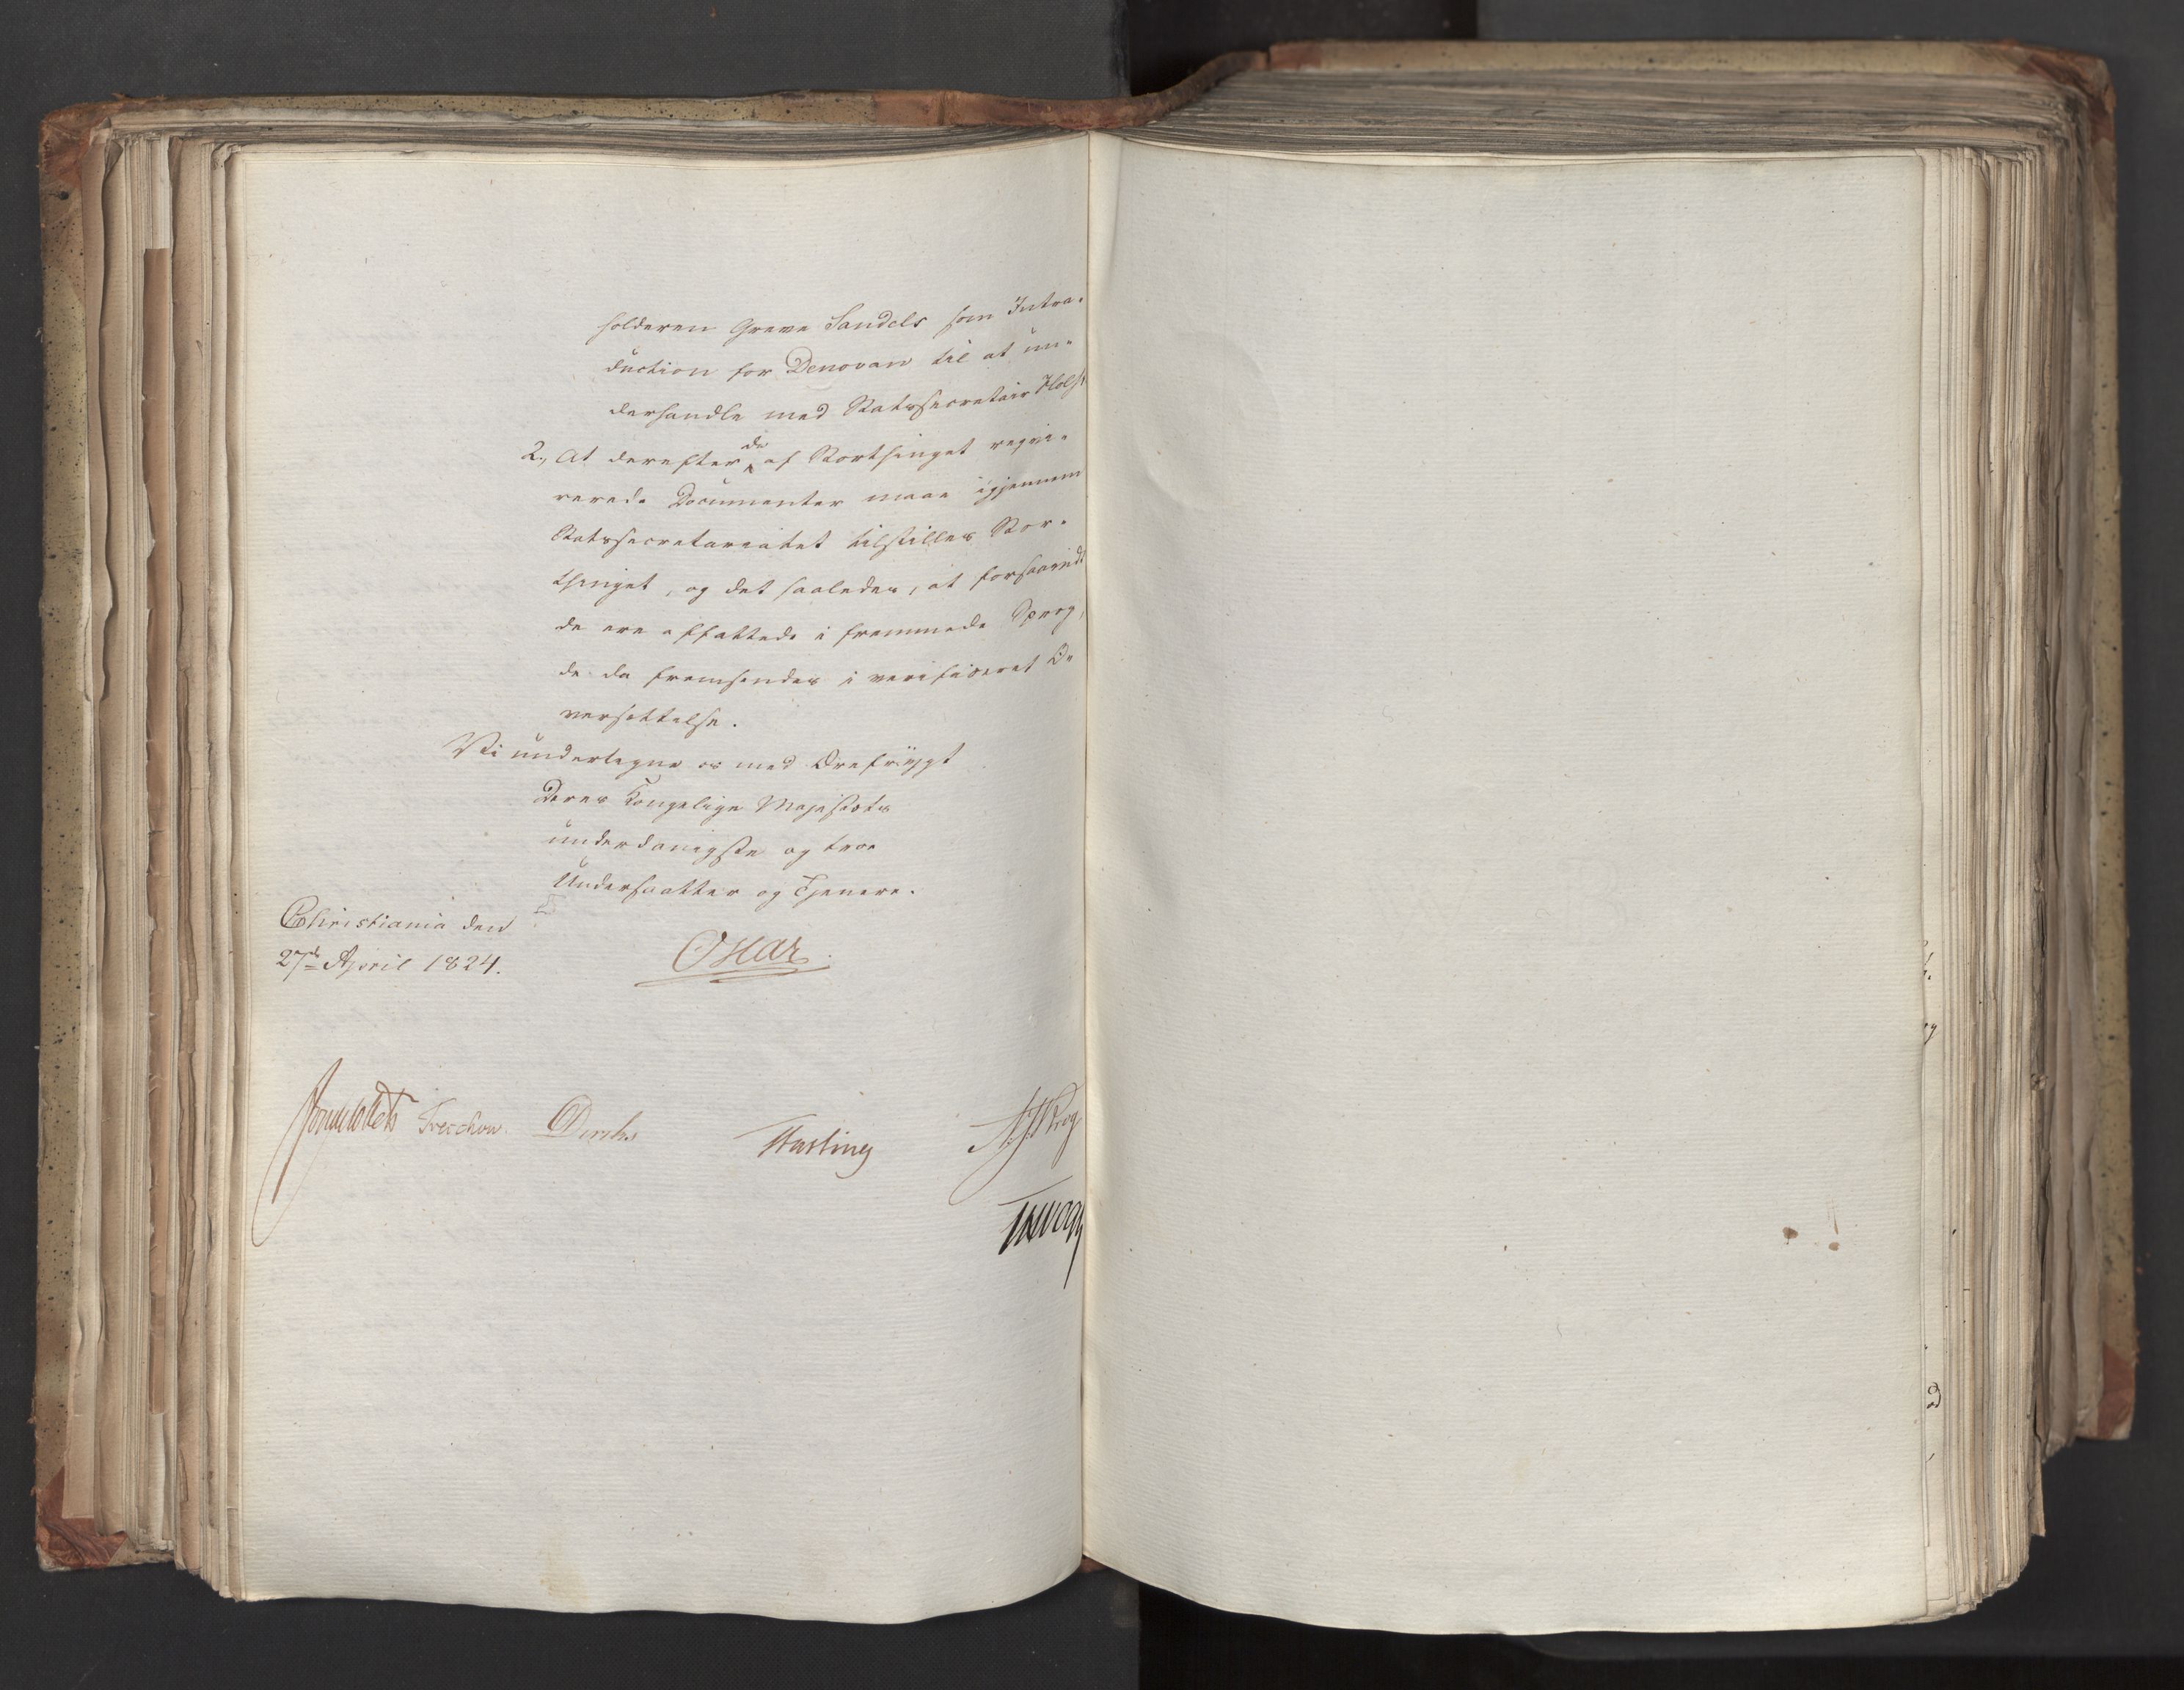 holderen Greve Sandels som Intro-
duction for Denovan til at un-
derhandle med Statssecretair Holst
2, At derefter de af Storthinget reqvi-
rerede Documenter maae igjennem
Statssecretariatet tilstilles Stor-
thinget, og det saaledes, at forsaavidt
de ere affattede i fremmede Sprog,
de da fremsendes i verificeret O-
versættelse.
Vi undertegne os med Ærefrygt
Deres Kongelige Majestæts
underdanigste og troe
Undersaatter og Tjenere.
Christiania den
27de April 1824.
Oscar
Sommerhielm Treschow Diriks Fasting Krog
Vogt